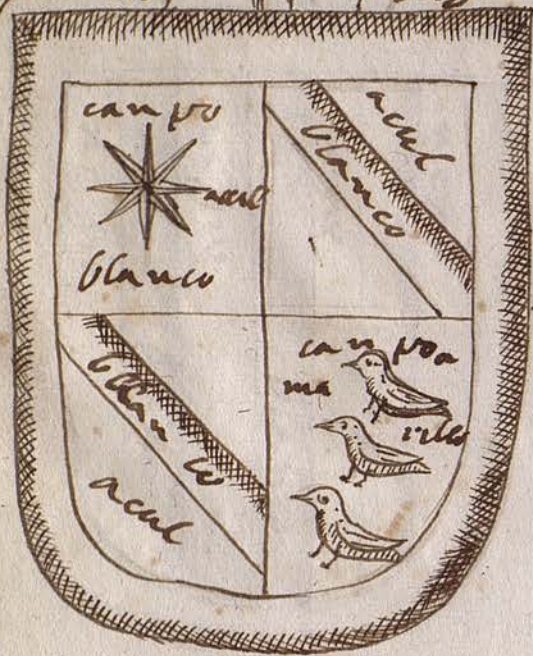 campo
acul
blanco
acul
blanco
blanco
acul
campo a
ma
rillo